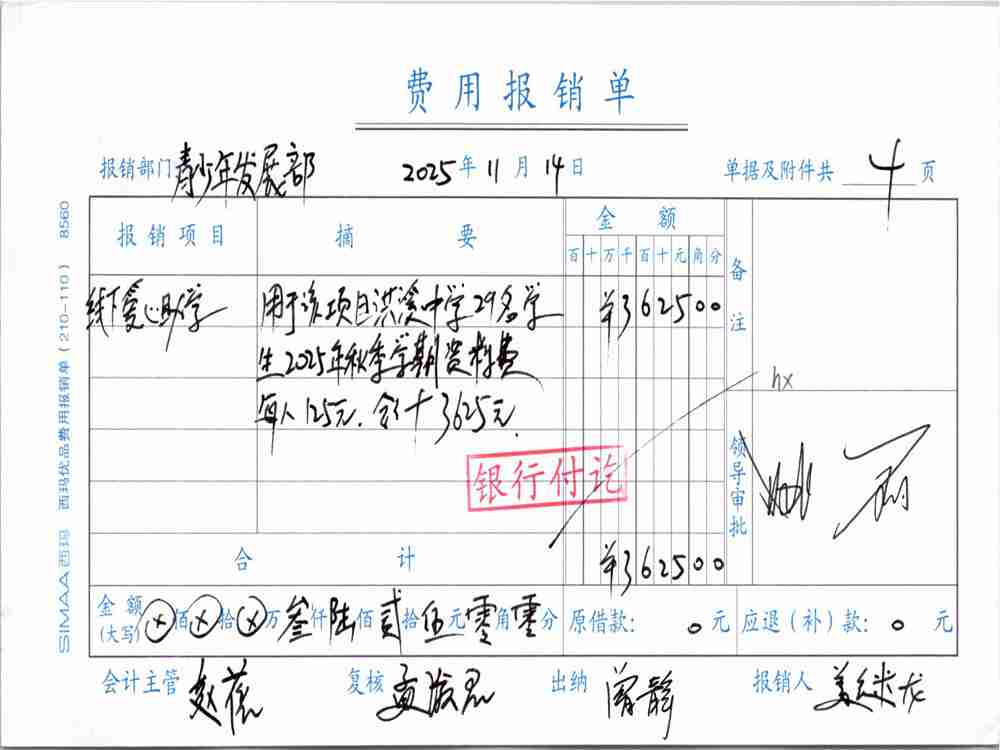 费用报销单
报销部门 青少年发展部 2025年11月14日 单据及附件共 4 页
报销项目 摘要 金额 备注
百十万千百十元角分
线下爱心助学 用于该项目洪溪中学29名学 ¥362500
生2025年秋季学期资料费
每人125元,合计3625元.
hx
银行付讫
领导审批
合计 ¥362500
金额(大写) ⊗佰⊗拾⊗万叁仟陆佰贰拾伍元零角零分 原借款: 0元 应退(补)款: 0元
会计主管 复核 出纳 曾静 报销人
SIMAA西玛 西玛优品费用报销单(210-110) 8560